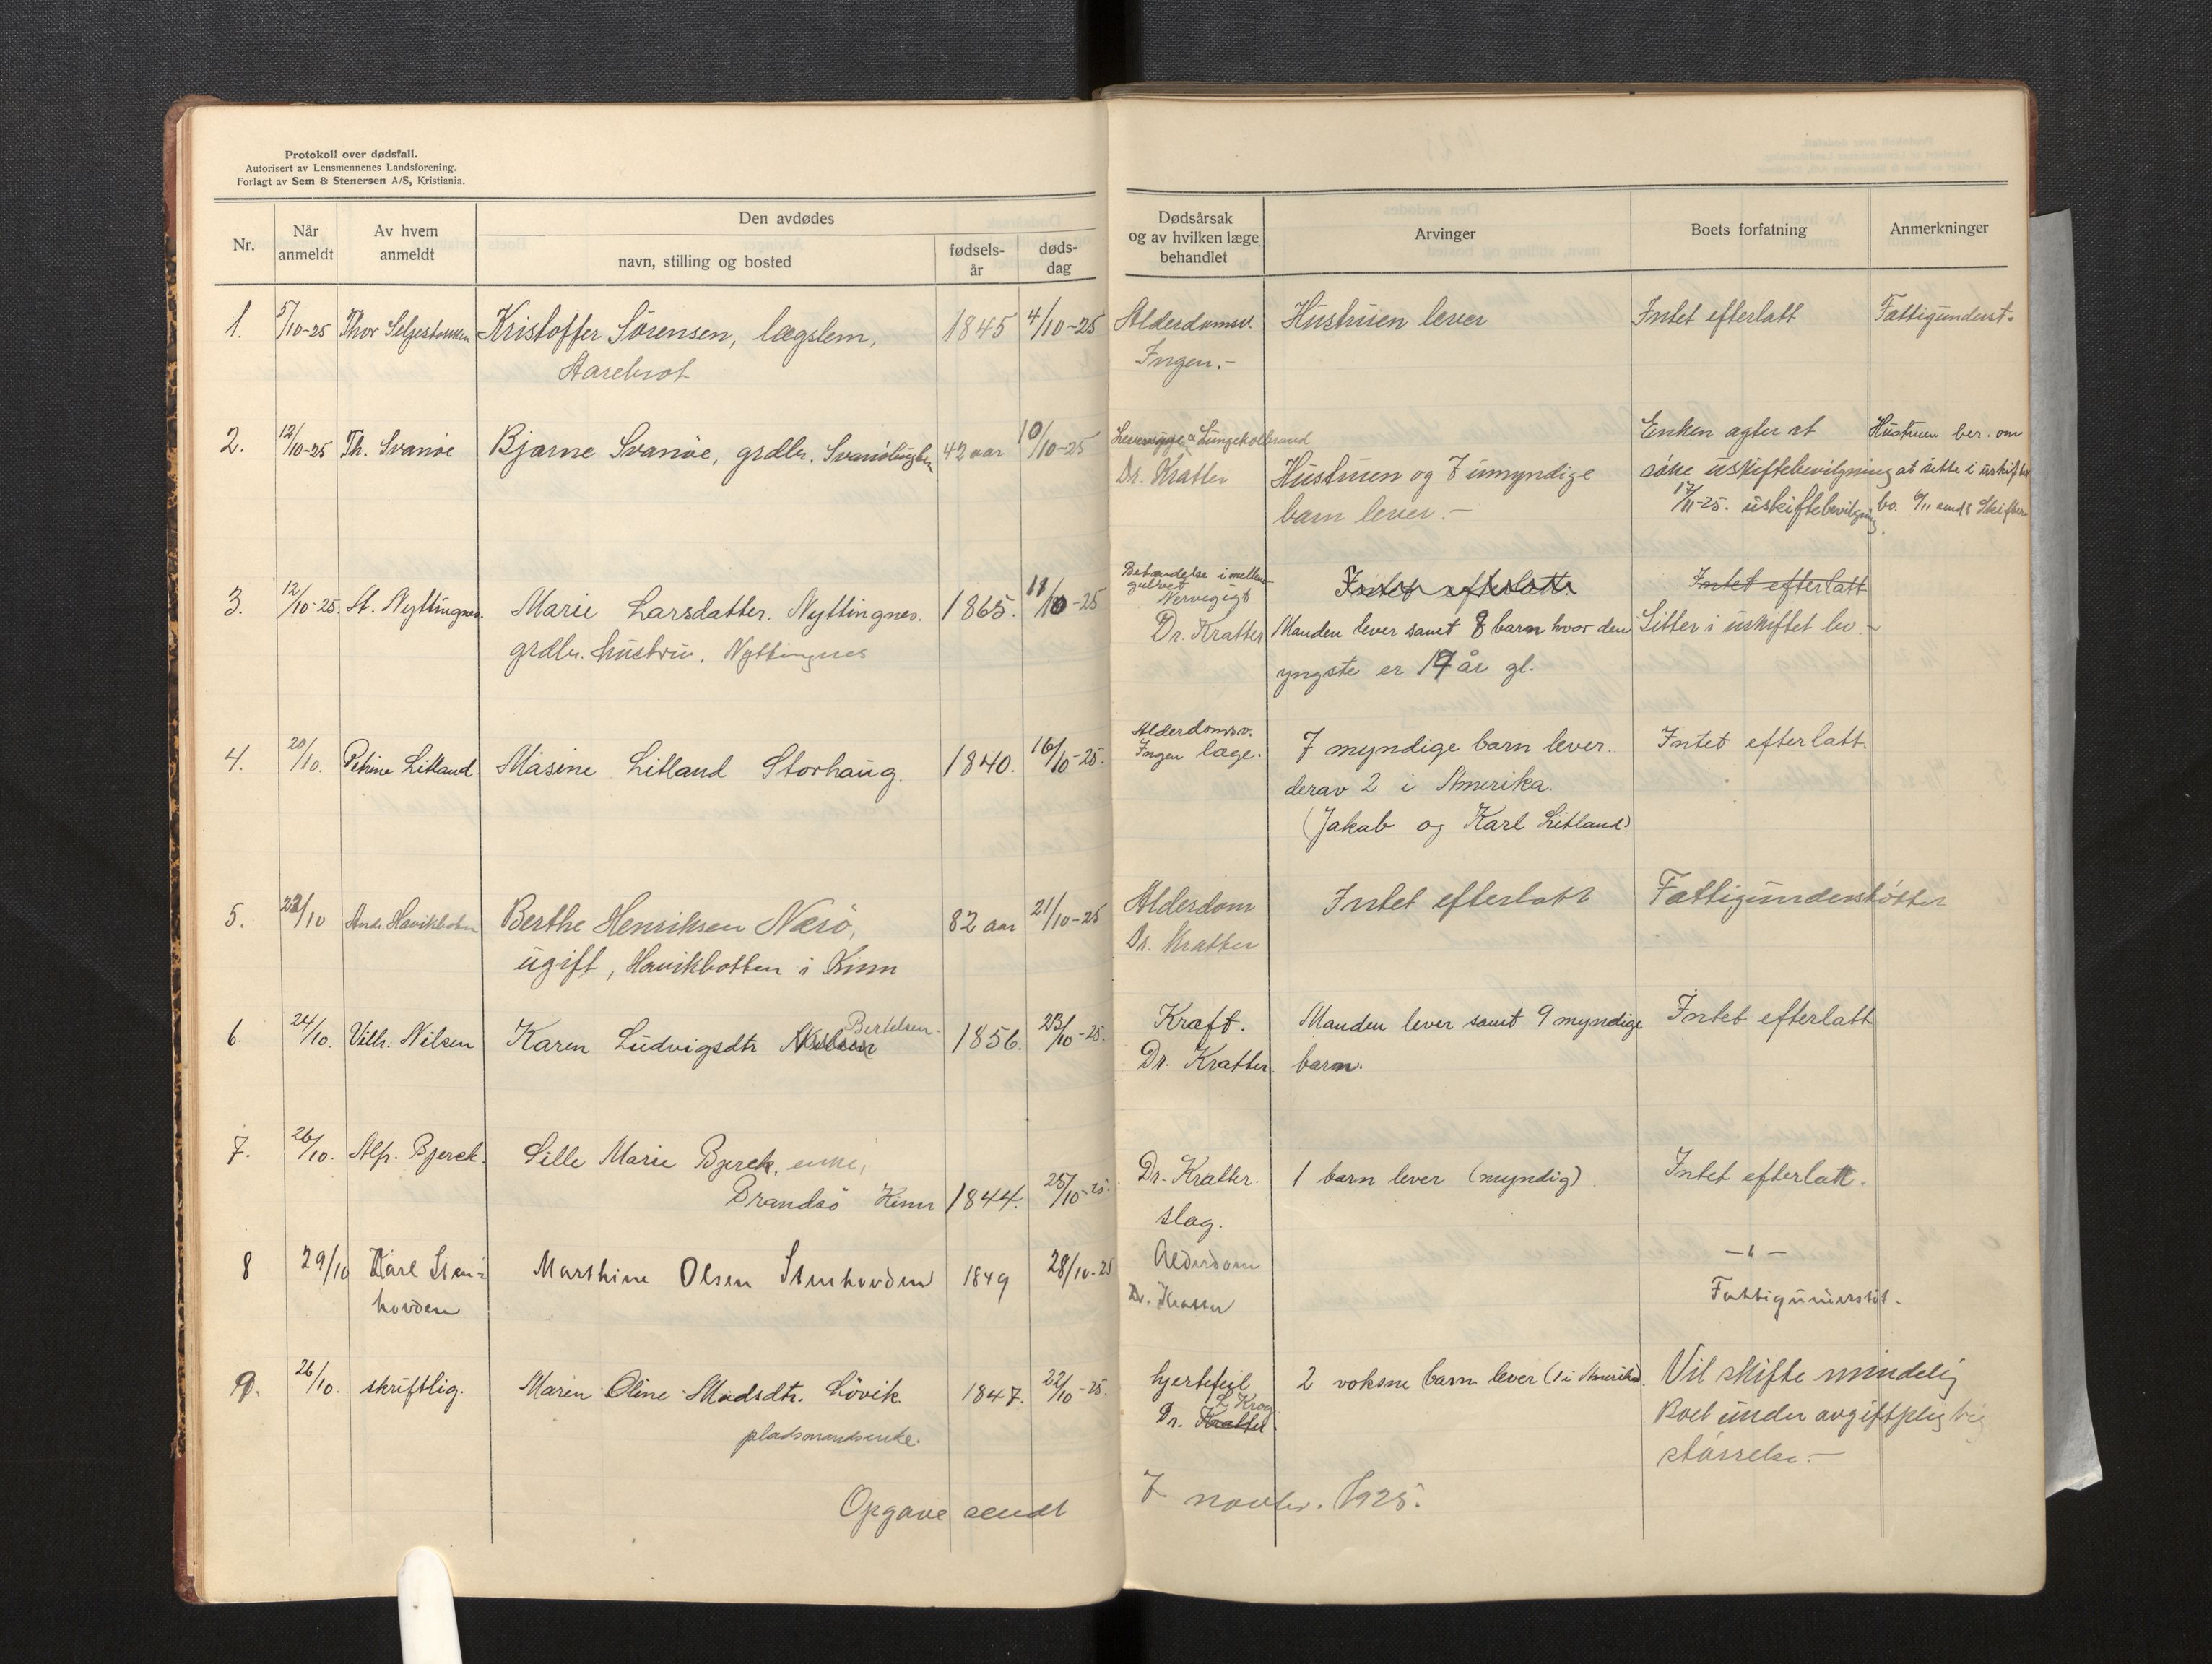 Protokoll over dødsfall.
Autorisert av Lensmennenes Landsforening.
Forlagt av Sem & Stenersen A/S, Kristiania.
Nr.
Når
anmeldt
Av hvem
anmeldt
Den avdødes
navn, stilling og bosted
fødsels-
år
døds-
dag
Dødsårsak
og av hvilken læge
behandlet
Arvinger
Boets forfatning
Anmerkninger
1. 5/10-25 Thor Kristoffer Sörensen, lægslem, 1845 4/10-25 Alderdomsv. Hustruen lever Intet efterlatt Fattigunderst.
Aarebrot Ingen.-
2. 12/10-25 Th. Svanöe Bjarne Svanöe, grdbr. 42 aar 10/10-25
Dr. Kratter Hustruen og 7 umyndige
barn lever.-
Enken agter at
söke uskiftebevilgning
17/11-25. uskiftebevilgning
Hustruen ber. om
at sitte i uskiftet
bo. 6/11 sendt Skifter
3. 12/10-25. A. Nyttingnes. Marie Larsdatter. Nyttingnes. 1865. 11/10-25
grdbr. hustru. Nyttingnes
Betændelse i mellem-
gulvet
Nervegigt
Dr. Kratter
Intet efterlatt.
Manden lever samt 8 barn hvor den
yngste er 17 år gl.
Intet efterlatt
Sitter i uskiftet bo.-
4. 20/10. Petrine Litland Masine Litland Storhaug. 1840. 16/10-25.
Alderdomsv.
Ingen læge.
7 myndige barn lever.
derav 2 i Amerika.
(Jakab og Karl Litland)
Intet efterlatt.
5. 22/10 Berthe Henriksen Næsö, 82 aar 21/10-25
ugift, Havikbotten i Kinn
Alderdom
Dr. Kratter
Intet efterlatt
Fattigunderstötter
6. 24/10. Vilh. Nilsen Karen Ludvigsdtr Nilsen Bertelsen. 1856. 23/10-25.
Kraft.
Dr. Kratter.
Manden lever samt 9 myndige
barn.
Intet efterlatt
7. 26/10. Alf. Bjerck. Sille Marie Bjerck, enke,
Brandsö Kinn 1844. 25/10-25.
Dr. Kratter.
slag.
1 barn lever (myndig).
Intet efterlatt.
8 29/10 Karl Sten-
hovden
Marthine Olsen Stenhovden 1849 28/10-25
Alderdom
Dr. Kratter
-"-
Fattigunderstöt.
9. 26/10. skriftlig. Maren Oline Madsdtr. Lövik. 1847. 22/10-25.
pladsmandsenke.
hjertefeil
L. Krog
Dr. Kratter.
2 voksne barn lever (1 i Amerika).
Vil skifte mindelig
Boet under avgiftpligtig
störrelse.-
Opgave sendt 7 novbr. 1925.